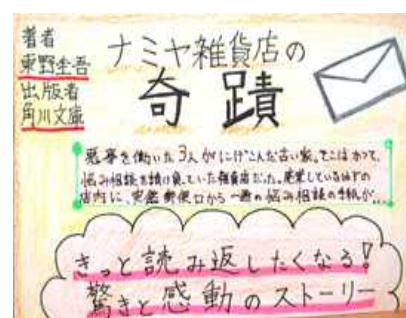 著者
東野圭吾
出版者
角川文庫
ナミヤ雑貨店の
奇蹟
悪事を働いた3人がにげこんだ古い家。そこはかつて、
悩み相談を請け負っていた雑貨店だった。廃業しているはずの
店内に、突然郵便口から一通の悩み相談の手紙が…
きっと読み返したくなる!
驚きと感動のストーリー